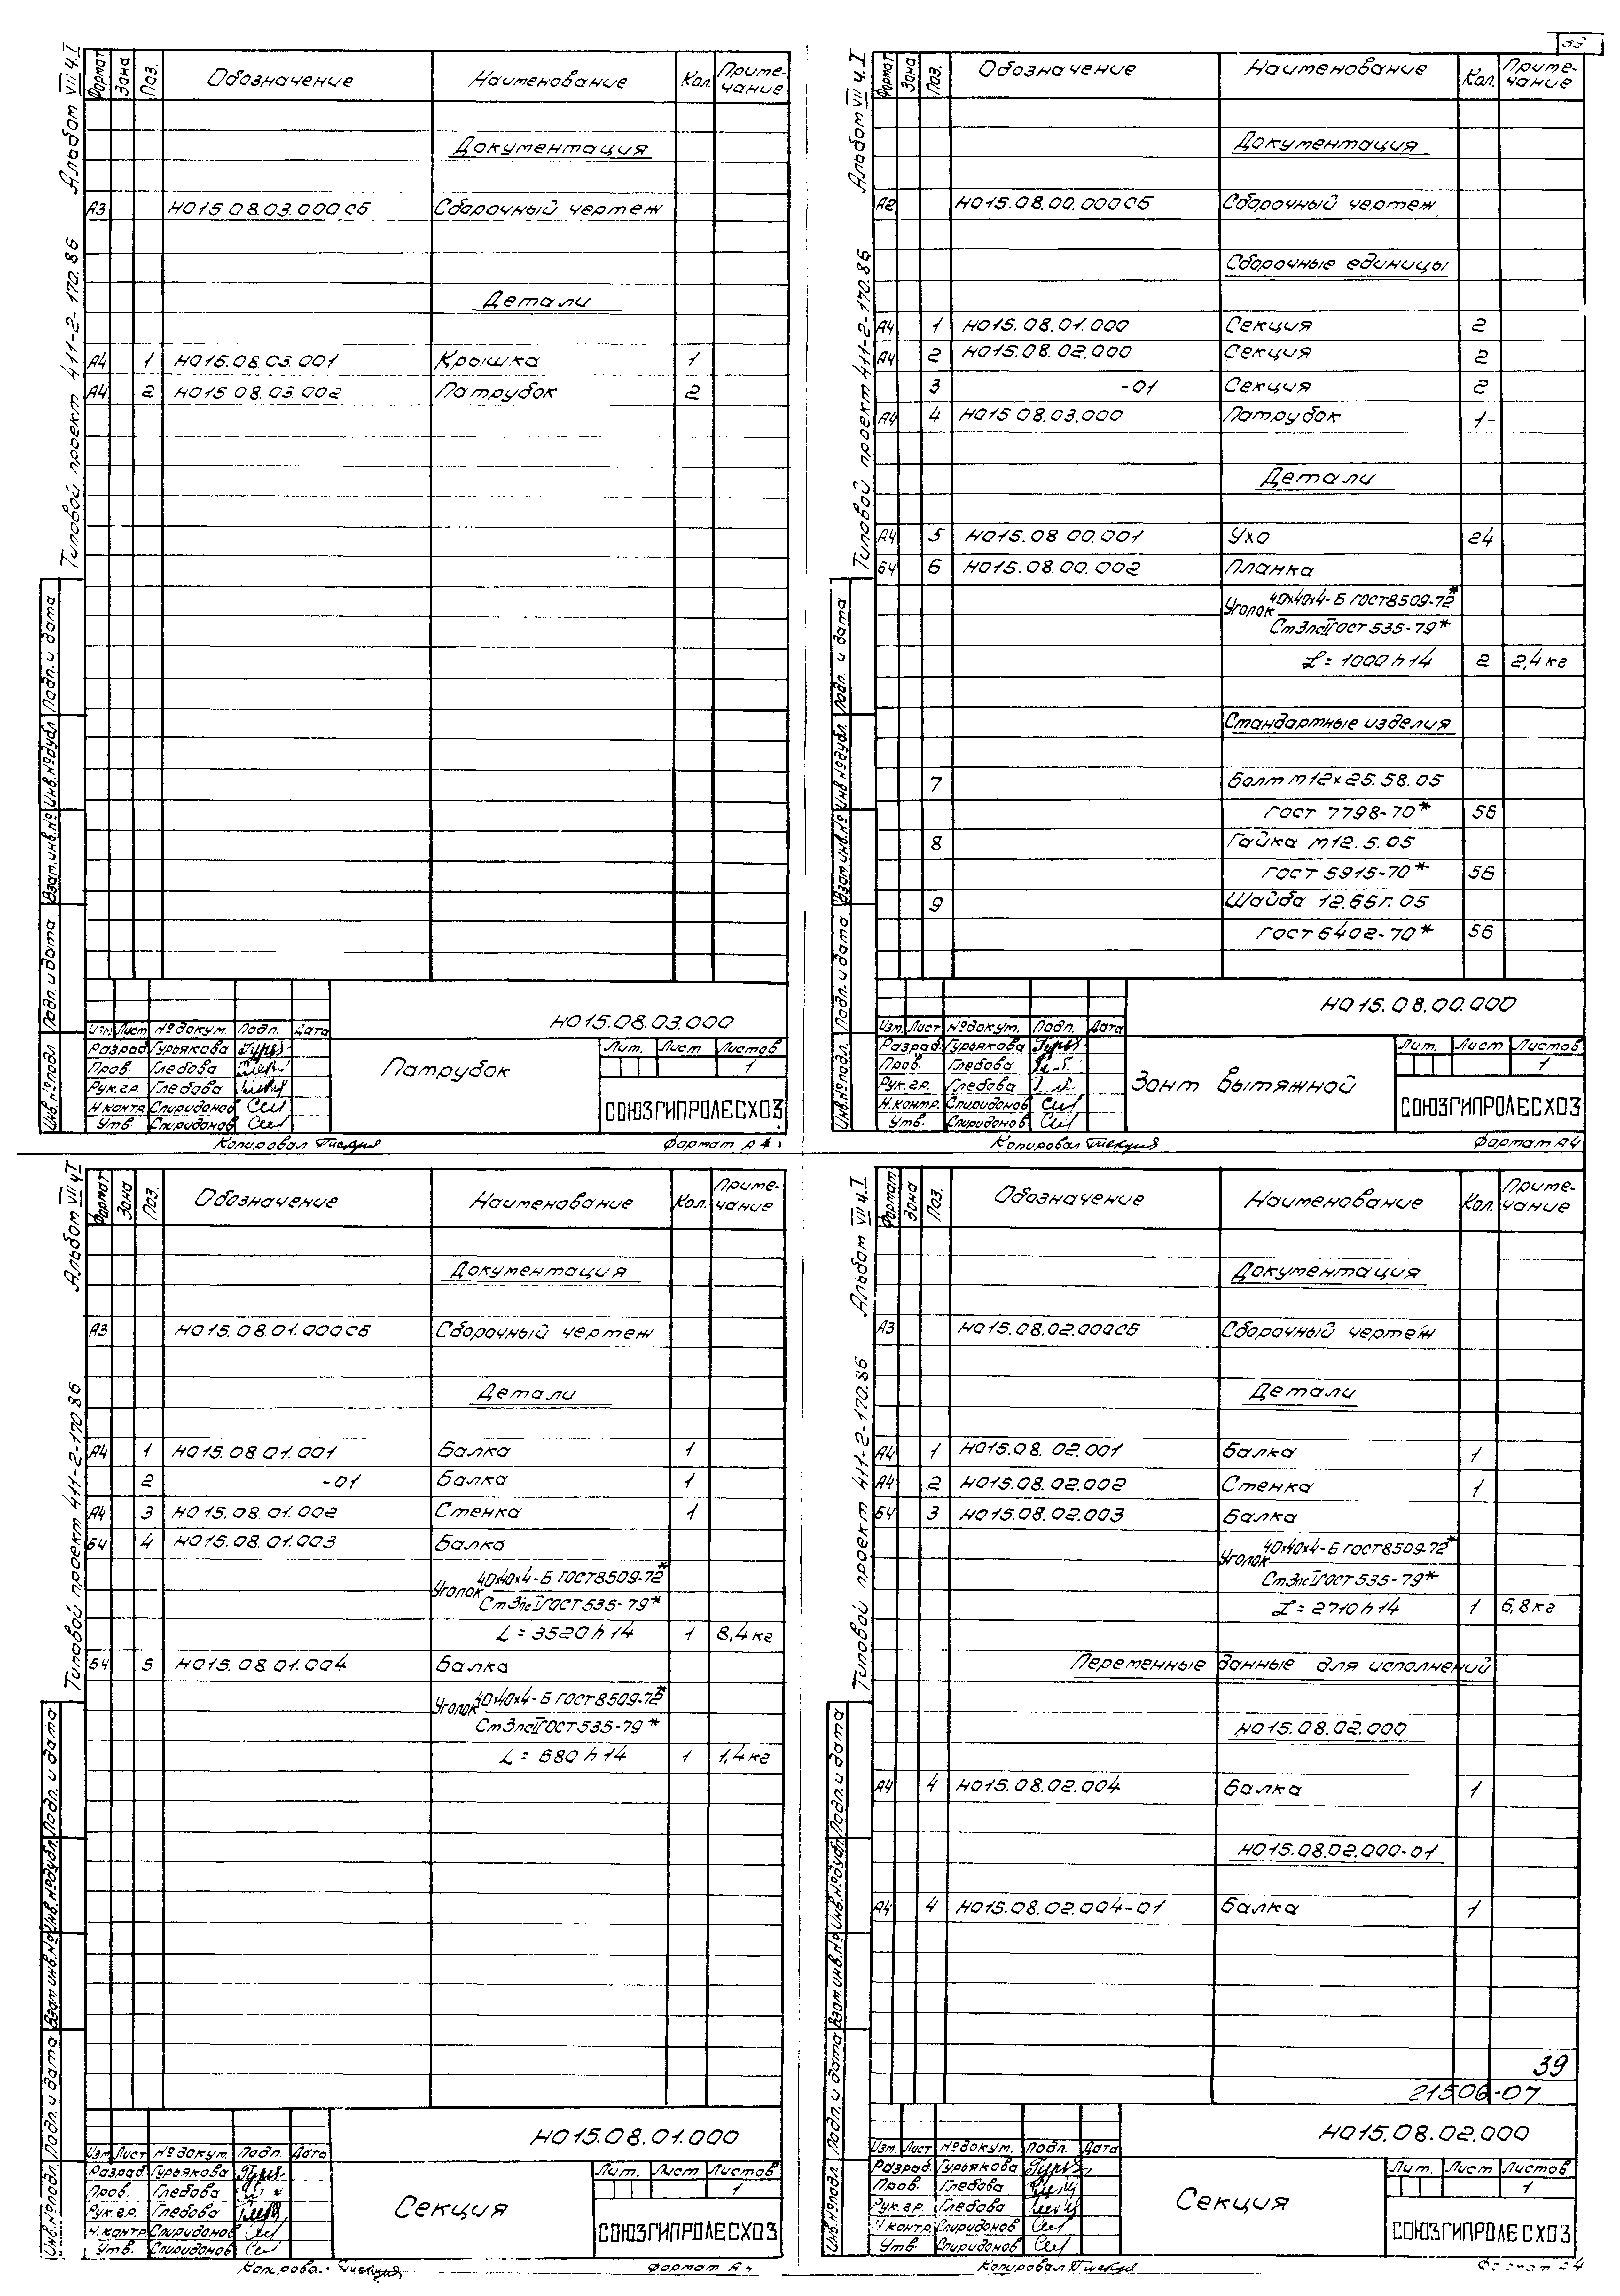 Альбом VII ч.I
Типовой проект 411-2-170.86
Формат Зона Поз. Обозначение Наименование Кол. Приме-
чание
Документация
А3 НО15.08.03.000СБ Сборочный чертеж
Детали
А4 1 НО15.08.03.001 Крышка 1
А4 2 НО15.08.03.002 Патрубок 2
Инв.№подл. Подп. и дата Взам.инв.№ Инв.№дубл. Подп. и дата
НО15.08.03.000
Изм. Лист №докум. Подп. Дата
Разраб. Гурьякова
Пров. Глебова
Рук.гр. Глебова
Н.контр. Спиридонов
Утв. Спиридонов
Патрубок
Лит. Лист Листов
1
СОЮЗГИПРОЛЕСХОЗ
Копировал
Формат А4
Альбом VII ч.I
Типовой проект 411-2-170.86
Формат Зона Поз. Обозначение Наименование Кол. Приме-
чание
Документация
А2 НО15.08.00.000СБ Сборочный чертеж
Сборочные единицы
А4 1 НО15.08.01.000 Секция 2
А4 2 НО15.08.02.000 Секция 2
3 -01 Секция 2
А4 4 НО15.08.03.000 Патрубок 1
Детали
А4 5 НО15.08.00.001 Ухо 24
БЧ 6 НО15.08.00.002 Планка
Уголок 40х40х4-Б ГОСТ8509-72*
Ст3псII ГОСТ 535-79*
L = 1000 h14 2 2,4 кг
Стандартные изделия
7 Болт М12х25.58.05
ГОСТ 7798-70* 56
8 Гайка М12.5.05
ГОСТ 5915-70* 56
9 Шайба 12.65Г.05
ГОСТ 6402-70* 56
Инв.№подл. Подп. и дата Взам.инв.№ Инв.№дубл. Подп. и дата
НО15.08.00.000
Изм. Лист №докум. Подп. Дата
Разраб. Гурьякова
Пров. Глебова
Рук.гр. Глебова
Н.контр. Спиридонов
Утв. Спиридонов
Зонт вытяжной
Лит. Лист Листов
1
СОЮЗГИПРОЛЕСХОЗ
Копировал
Формат А4
Альбом VII ч.I
Типовой проект 411-2-170.86
Формат Зона Поз. Обозначение Наименование Кол. Приме-
чание
Документация
А3 НО15.08.01.000СБ Сборочный чертеж
Детали
А4 1 НО15.08.01.001 Балка 1
2 -01 Балка 1
А4 3 НО15.08.01.002 Стенка 1
БЧ 4 НО15.08.01.003 Балка
Уголок 40х40х4-Б ГОСТ8509-72*
Ст3псI ГОСТ 535-79*
L = 3520 h14 1 8,4 кг
БЧ 5 НО15.08.01.004 Балка
Уголок 40х40х4-Б ГОСТ8509-72*
Ст3псII ГОСТ 535-79*
L = 680 h14 1 1,4 кг
Инв.№подл. Подп. и дата Взам.инв.№ Инв.№дубл. Подп. и дата
НО15.08.01.000
Изм. Лист №докум. Подп. Дата
Разраб. Гурьякова
Пров. Глебова
Рук.гр. Глебова
Н.контр. Спиридонов
Утв. Спиридонов
Секция
Лит. Лист Листов
1
СОЮЗГИПРОЛЕСХОЗ
Копировал
Формат А4
Альбом VII ч.I
Типовой проект 411-2-170.86
Формат Зона Поз. Обозначение Наименование Кол. Приме-
чание
Документация
А3 НО15.08.02.000СБ Сборочный чертеж
Детали
А4 1 НО15.08.02.001 Балка 1
А4 2 НО15.08.02.002 Стенка 1
БЧ 3 НО15.08.02.003 Балка
Уголок 40х40х4-Б ГОСТ8509-72*
Ст3псI ГОСТ 535-79*
L = 2710 h14 1 6,8 кг
Переменные данные для исполнений
НО15.08.02.000
А4 4 НО15.08.02.004 Балка 1
НО15.08.02.000-01
А4 4 НО15.08.02.004-01 Балка 1
39
21506-07
Инв.№подл. Подп. и дата Взам.инв.№ Инв.№дубл. Подп. и дата
НО15.08.02.000
Изм. Лист №докум. Подп. Дата
Разраб. Гурьякова
Пров. Глебова
Рук.гр. Глебова
Н.контр. Спиридонов
Утв. Спиридонов
Секция
Лит. Лист Листов
1
СОЮЗГИПРОЛЕСХОЗ
Копировал
Формат А4